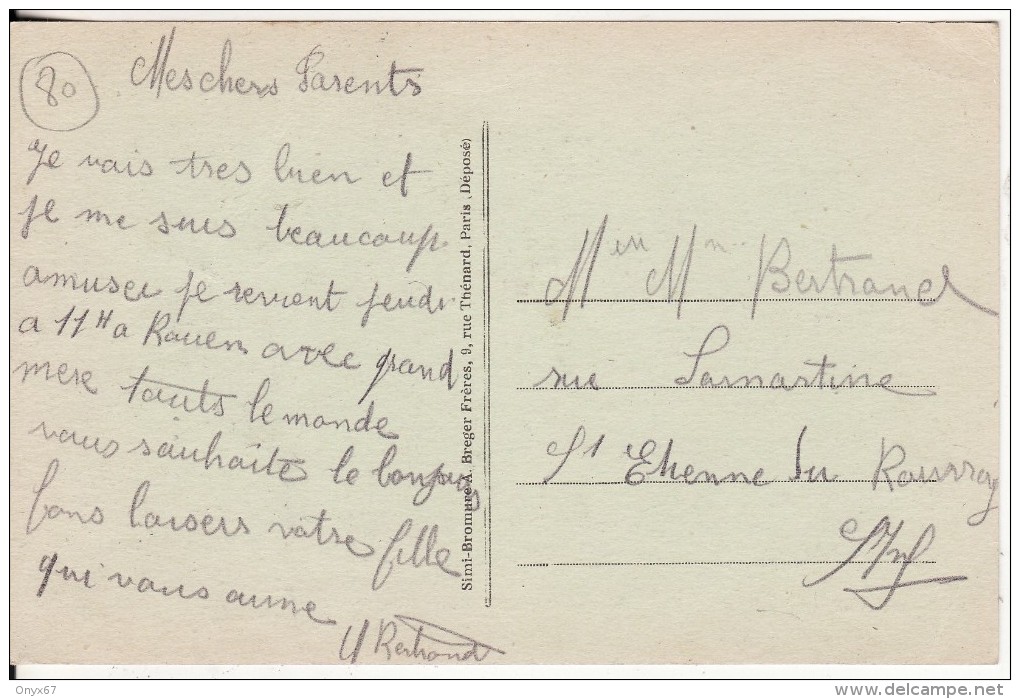 80
Mes chers Parents
Je vais tres bien et
je me suis beaucoup
amuser je revient jeudi
a 11H a Rouen avec grand
mere touts le monde
vous souhaite le bonjour
bons baisers votre fille
qui vous aime
Bertrand
Simi-Bromure A. Breger Frères, 9, rue Thénard, Paris (Déposé)
Bertrand
rue Lamartine
St Etienne du Rouvray
S/Inf
Onyx67
www.delcampe.net